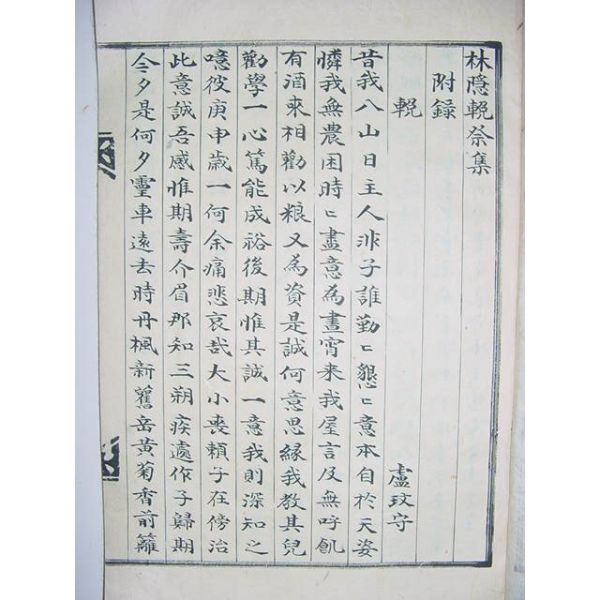 林隱輓祭集
附録
輓
盧玟守
昔我入山日主人非子誰勤〻懇〻意本自於天姿
憐我無農困時〻盡意為晝宵来我屋言及無呼飢
有酒来相勸以粮又為資是誠何意思緣我教其兒
勸學一心篤能成裕後期惟其誠一意我則深知之
噫彼庚申歲一何余痛悲哀哉大小喪頼子在傍治
此意誠吾感惟期壽介眉那知三朔疾遽作子歸期
今夕是何夕靈車遠去時丹楓新舊岳黄菊香前籬